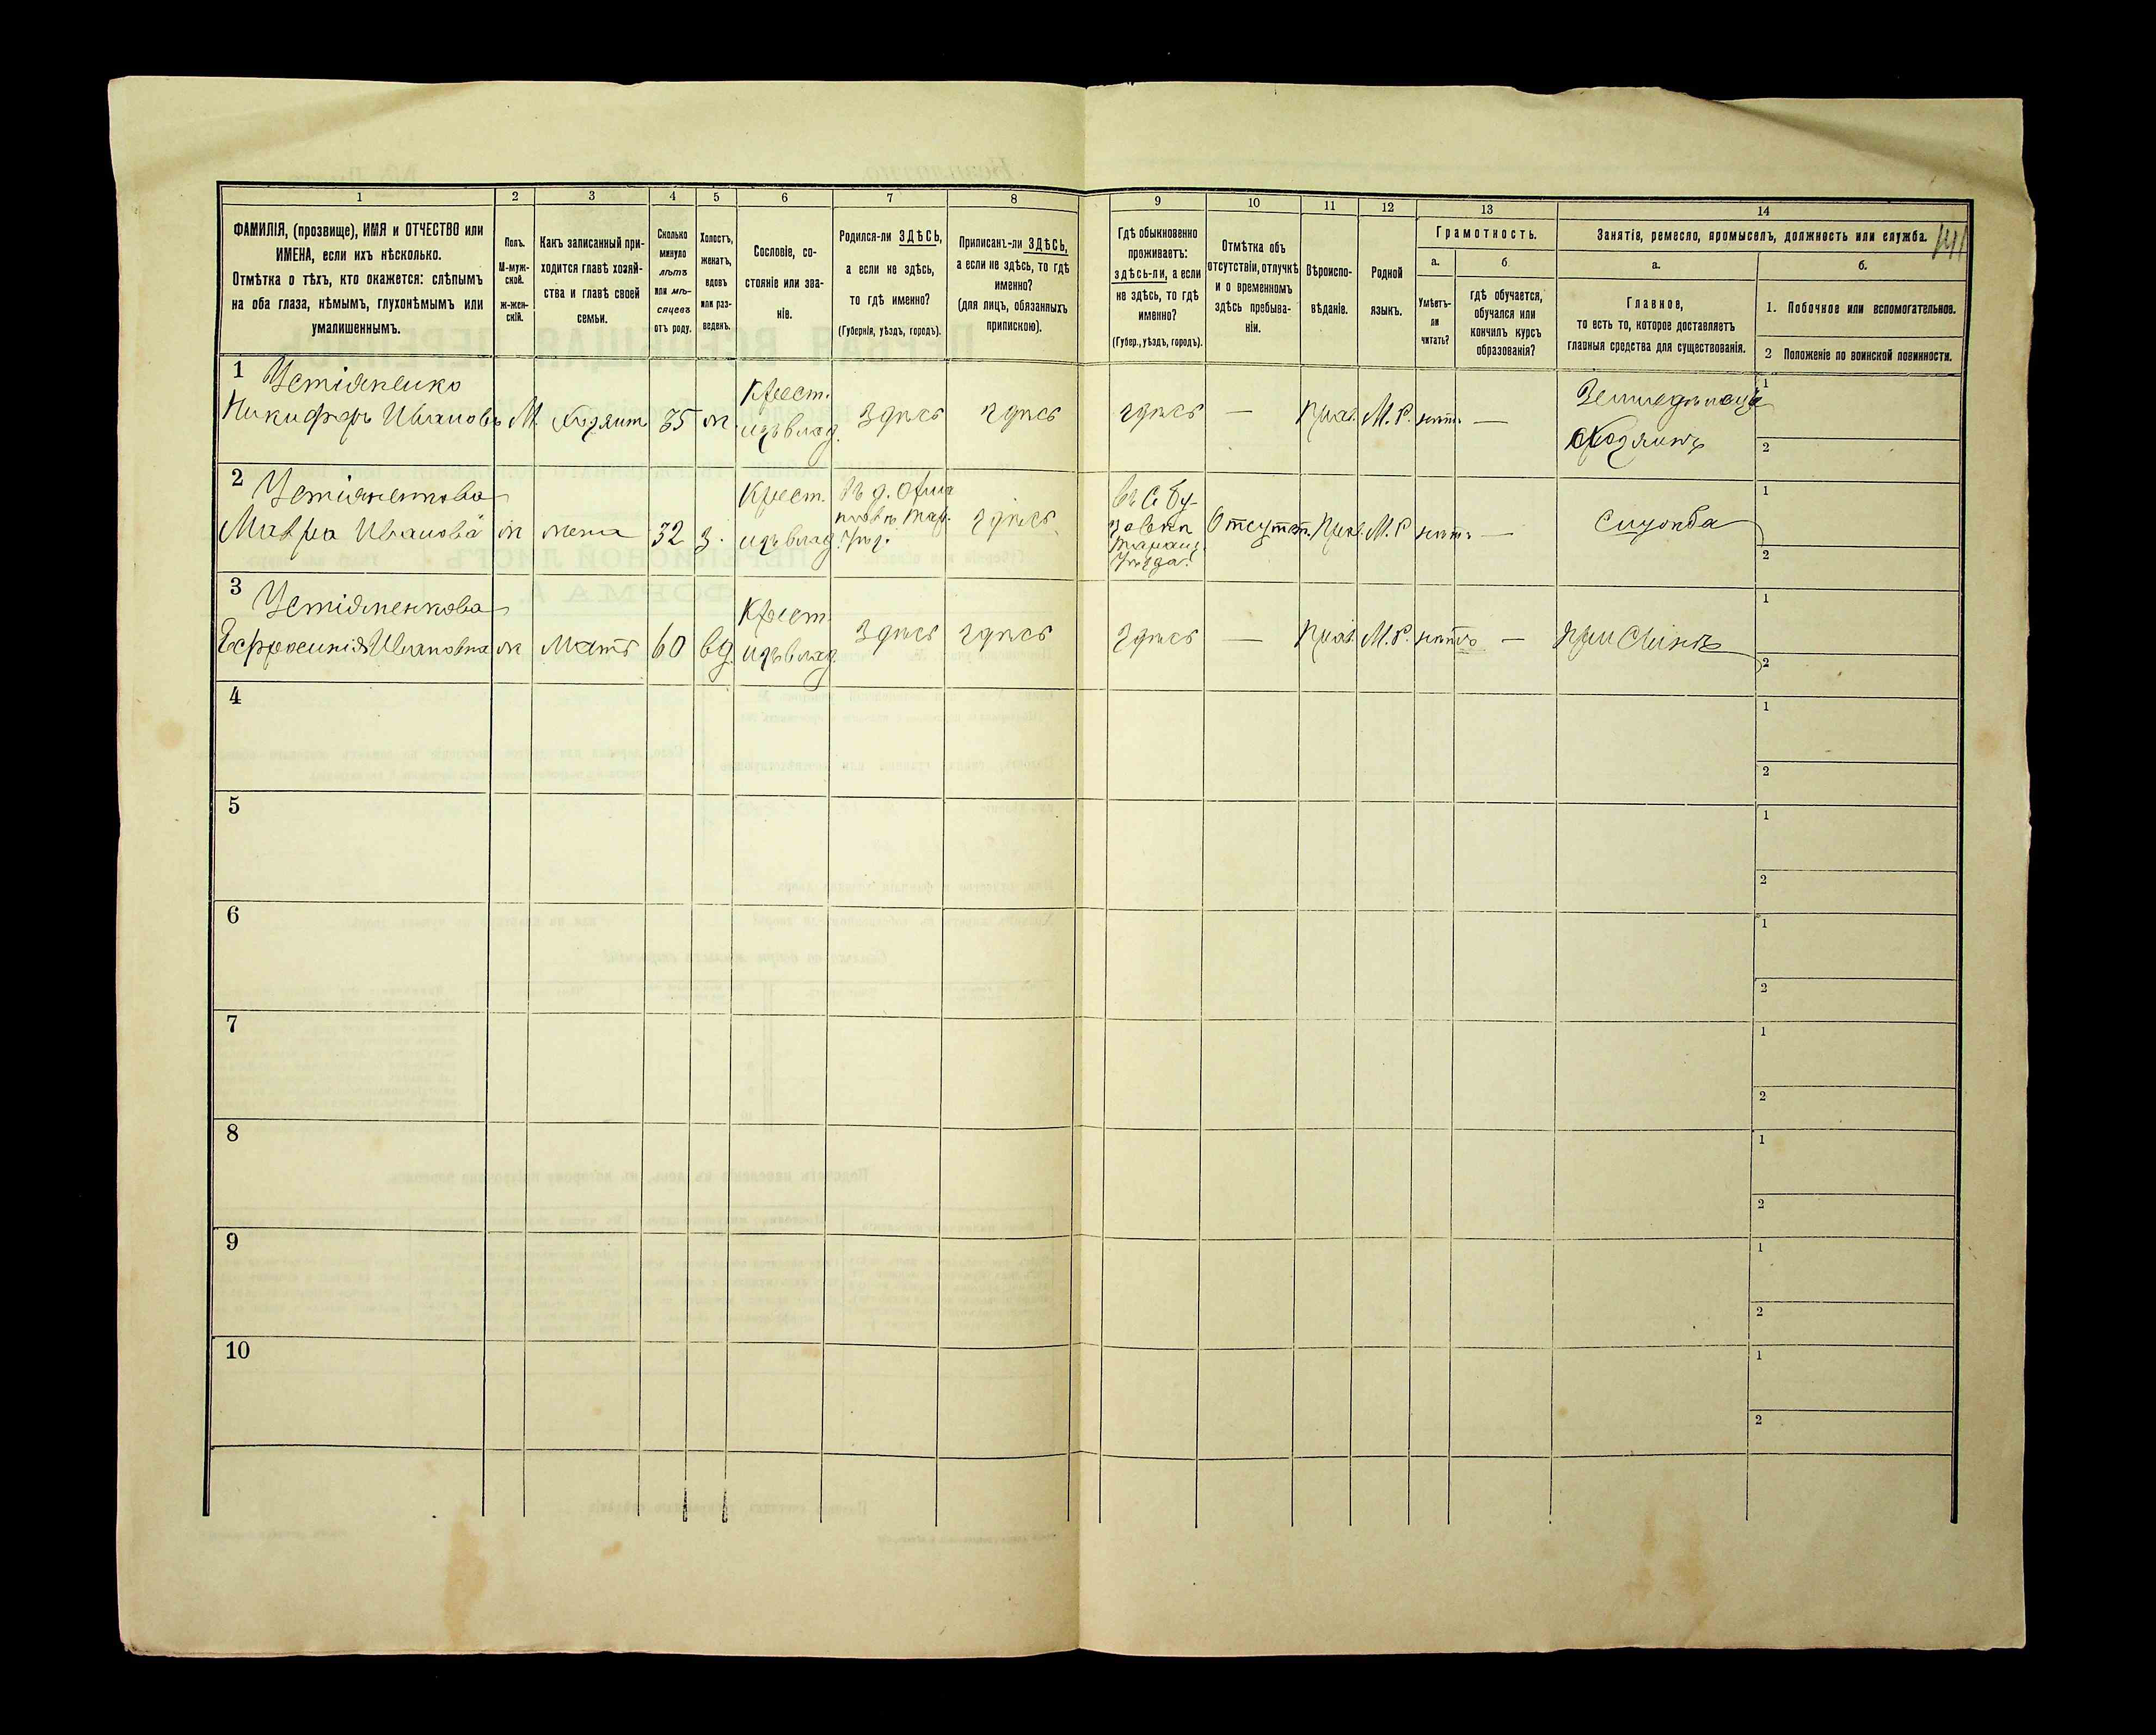 1 2 3 4 5 6 7 8 9 10 11 12 13 14
ФАМИЛІЯ, (прозвище), ИМЯ и ОТЧЕСТВО или
ИМЕНА, если ихъ нѣсколько.
Отмѣтка о тѣхъ, кто окажется: слѣпымъ
на оба глаза, нѣмымъ, глухонѣмымъ или
умалишеннымъ.
Полъ.
М-муж-
ской.
ж-жен-
скій.
Какъ записанный при-
ходится главѣ хозяй-
ства и главѣ своей
семьи.
Сколько
минуло
лѣтъ
или мѣ-
сяцевъ
отъ роду.
Холостъ,
женатъ,
вдовъ
или раз-
веденъ.
Сословіе, со-
стояніе или зва-
ніе.
Родился-ли ЗДѢСЬ,
а если не здѣсь,
то гдѣ именно?
(Губернія, уѣздъ, городъ).
Приписанъ-ли ЗДѢСЬ,
а если не здѣсь, то гдѣ
именно?
(для лицъ, обязанныхъ
припискою).
Гдѣ обыкновенно
проживаетъ:
здѣсь-ли, а если
не здѣсь, то гдѣ
именно?
(Губер., уѣздъ, городъ).
Отмѣтка объ
отсутствіи, отлучкѣ
и о временномъ
здѣсь пребыва-
ніи.
Вѣроиспо-
вѣданіе.
Родной
языкъ.
Грамотность.
а.
Умѣетъ-
ли
читать?
б.
гдѣ обучается,
обучался или
кончилъ курсъ
образованія?
Занятія, ремесло, промыселъ, должность или служба.
а.
Главное,
то есть то, которое доставляетъ
главныя средства для существованія.
б.
1. Побочное или вспомогательное.
2 Положеніе по воинской повинности.
1 Устіяненко
Никифоръ Ивановъ М. Хозяинъ 35 ж. Крест.
издѣвлад. Здѣсь здѣсь здѣсь — Прав. М. Р. нѣтъ —
Земледѣлецъ
Хозяинъ
1
2
2 Устіяненкова
Мавра Иванова ж жена 32 з. Крест.
здѣсь Отсутст. Прав. М. Р нѣтъ — Служба
1
2
3 Устіяненкова
Евфросинія Ивановна ж Мать 60 вд. Крест.
Здѣсь здѣсь здѣсь — Прав. М. Р. нѣтъ — при Сынѣ
1
2
4
1
2
5
1
2
6
1
2
7
1
2
8
1
2
9
1
2
10
1
2